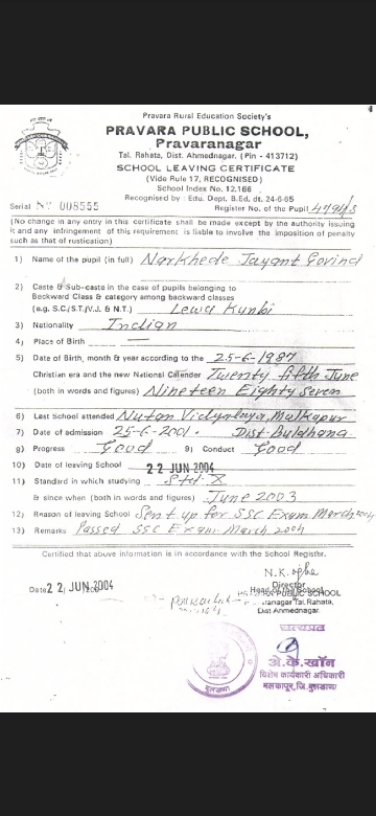 Pravara Rural Education Society's
PRAVARA PUBLIC SCHOOL,
Pravaranagar
Tal. Rahata, Dist. Ahmednagar. (Pin - 413712)
SCHOOL LEAVING CERTIFICATE
(Vide Rule 17, RECOGNISED)
School Index No. 12.166
Recognised by : Edu. Dept. B.Ed. dt. 24-6-65
Serial Nº 008555 Register No. of the Pupil
(No change in any entry in this certificate shall be made except by the authority issuing
it and any infringement of this requirement is liable to involve the imposition of penalty
such as that of rustication)
1) Name of the pupil (in full) Narkhede Jayant Govind
2) Caste & Sub-caste in the case of pupils belonging to
Backward Class & category among backward classes
(e.g. S.C./S.T./V.J. & N.T.) Lewa Kunbi
3) Nationality Indian
4) Place of Birth —
5) Date of Birth, month & year according to the 25-6-1987
Christian era and the new National Calender Twenty fifth June
(both in words and figures) Nineteen Eighty Seven
6) Last School attended Nutan Vidyalaya Malkapur
7) Date of admission 25-6-2001. Dist-Buldhana.
8) Progress Good 9) Conduct Good
10) Date of leaving School 22 JUN 2004
11) Standard in which studying Std. X
& since when (both in words and figures) June 2003
12) Reason of leaving School Sent up for SSC Exam March 2004
13) Remarks Passed SSC Exam March 2004
Certified that above information is in accordance with the School Register.
Date 22 JUN 2004
Director
Head of the School
PUBLIC SCHOOL
Tal. Rahata,
Dist Ahmednagar.
सत्यप्रत
अे.के.खॉन
विशेष कार्यकारी अधिकारी
मलकापूर,जि.बुलडाणा